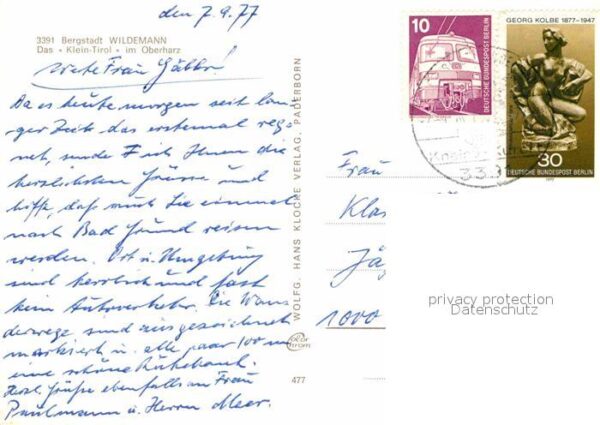 den 7.9.77
3391 Bergstadt WILDEMANN
Das «Klein-Tirol» im Oberharz
Frau
Da es heute morgen seit lan-
ger Zeit das erstemal reg-
net, sende ich Ihnen die
herzlichsten Grüsse und
hoffe, daß auch Sie einmal
nach Bad Grund reisen
werden. Ort u. Umgebung
sind herrlich und fast
kein Autoverkehr. Die Wan-
derwege sind ausgezeichnet
markiert u. alle paar 100 m
eine schöne Ruhebank.
Herzl. Grüße ebenfalls an Frau
Paulmann u. Herrn Meer.
WOLFG. HANS KLOCKE VERLAG, PADERBORN
477
10
DEUTSCHE BUNDESPOST BERLIN
GEORG KOLBE 1877-1947
30
DEUTSCHE BUNDESPOST BERLIN
1977
339
Frau
Klas
Jäg
1000
privacy protection
Datenschutz